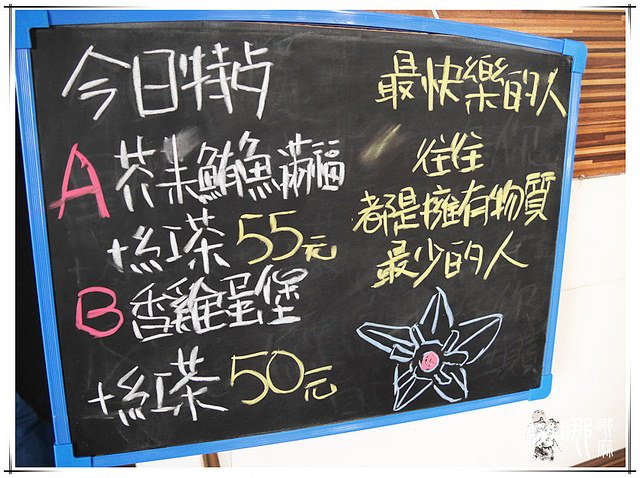 今日特点
A 芥末鮪魚滿福
+紅茶 55元
B 香雞蛋堡
+紅茶 50元
最快樂的人
往往
都是擁有物質
最少的人